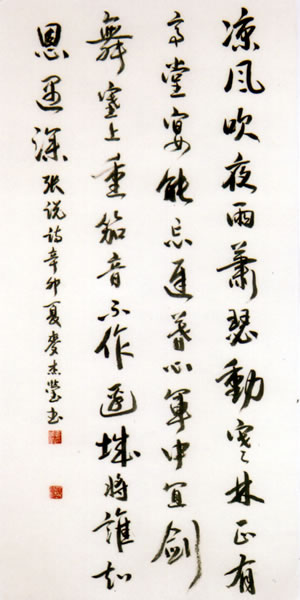 凉风吹夜雨蕭瑟動寒林正有
高堂宴能忘遲暮心軍中宜剑
舞塞上重笳音不作邊城將誰知
恩遇深 张说诗辛卯夏麥杰莹书